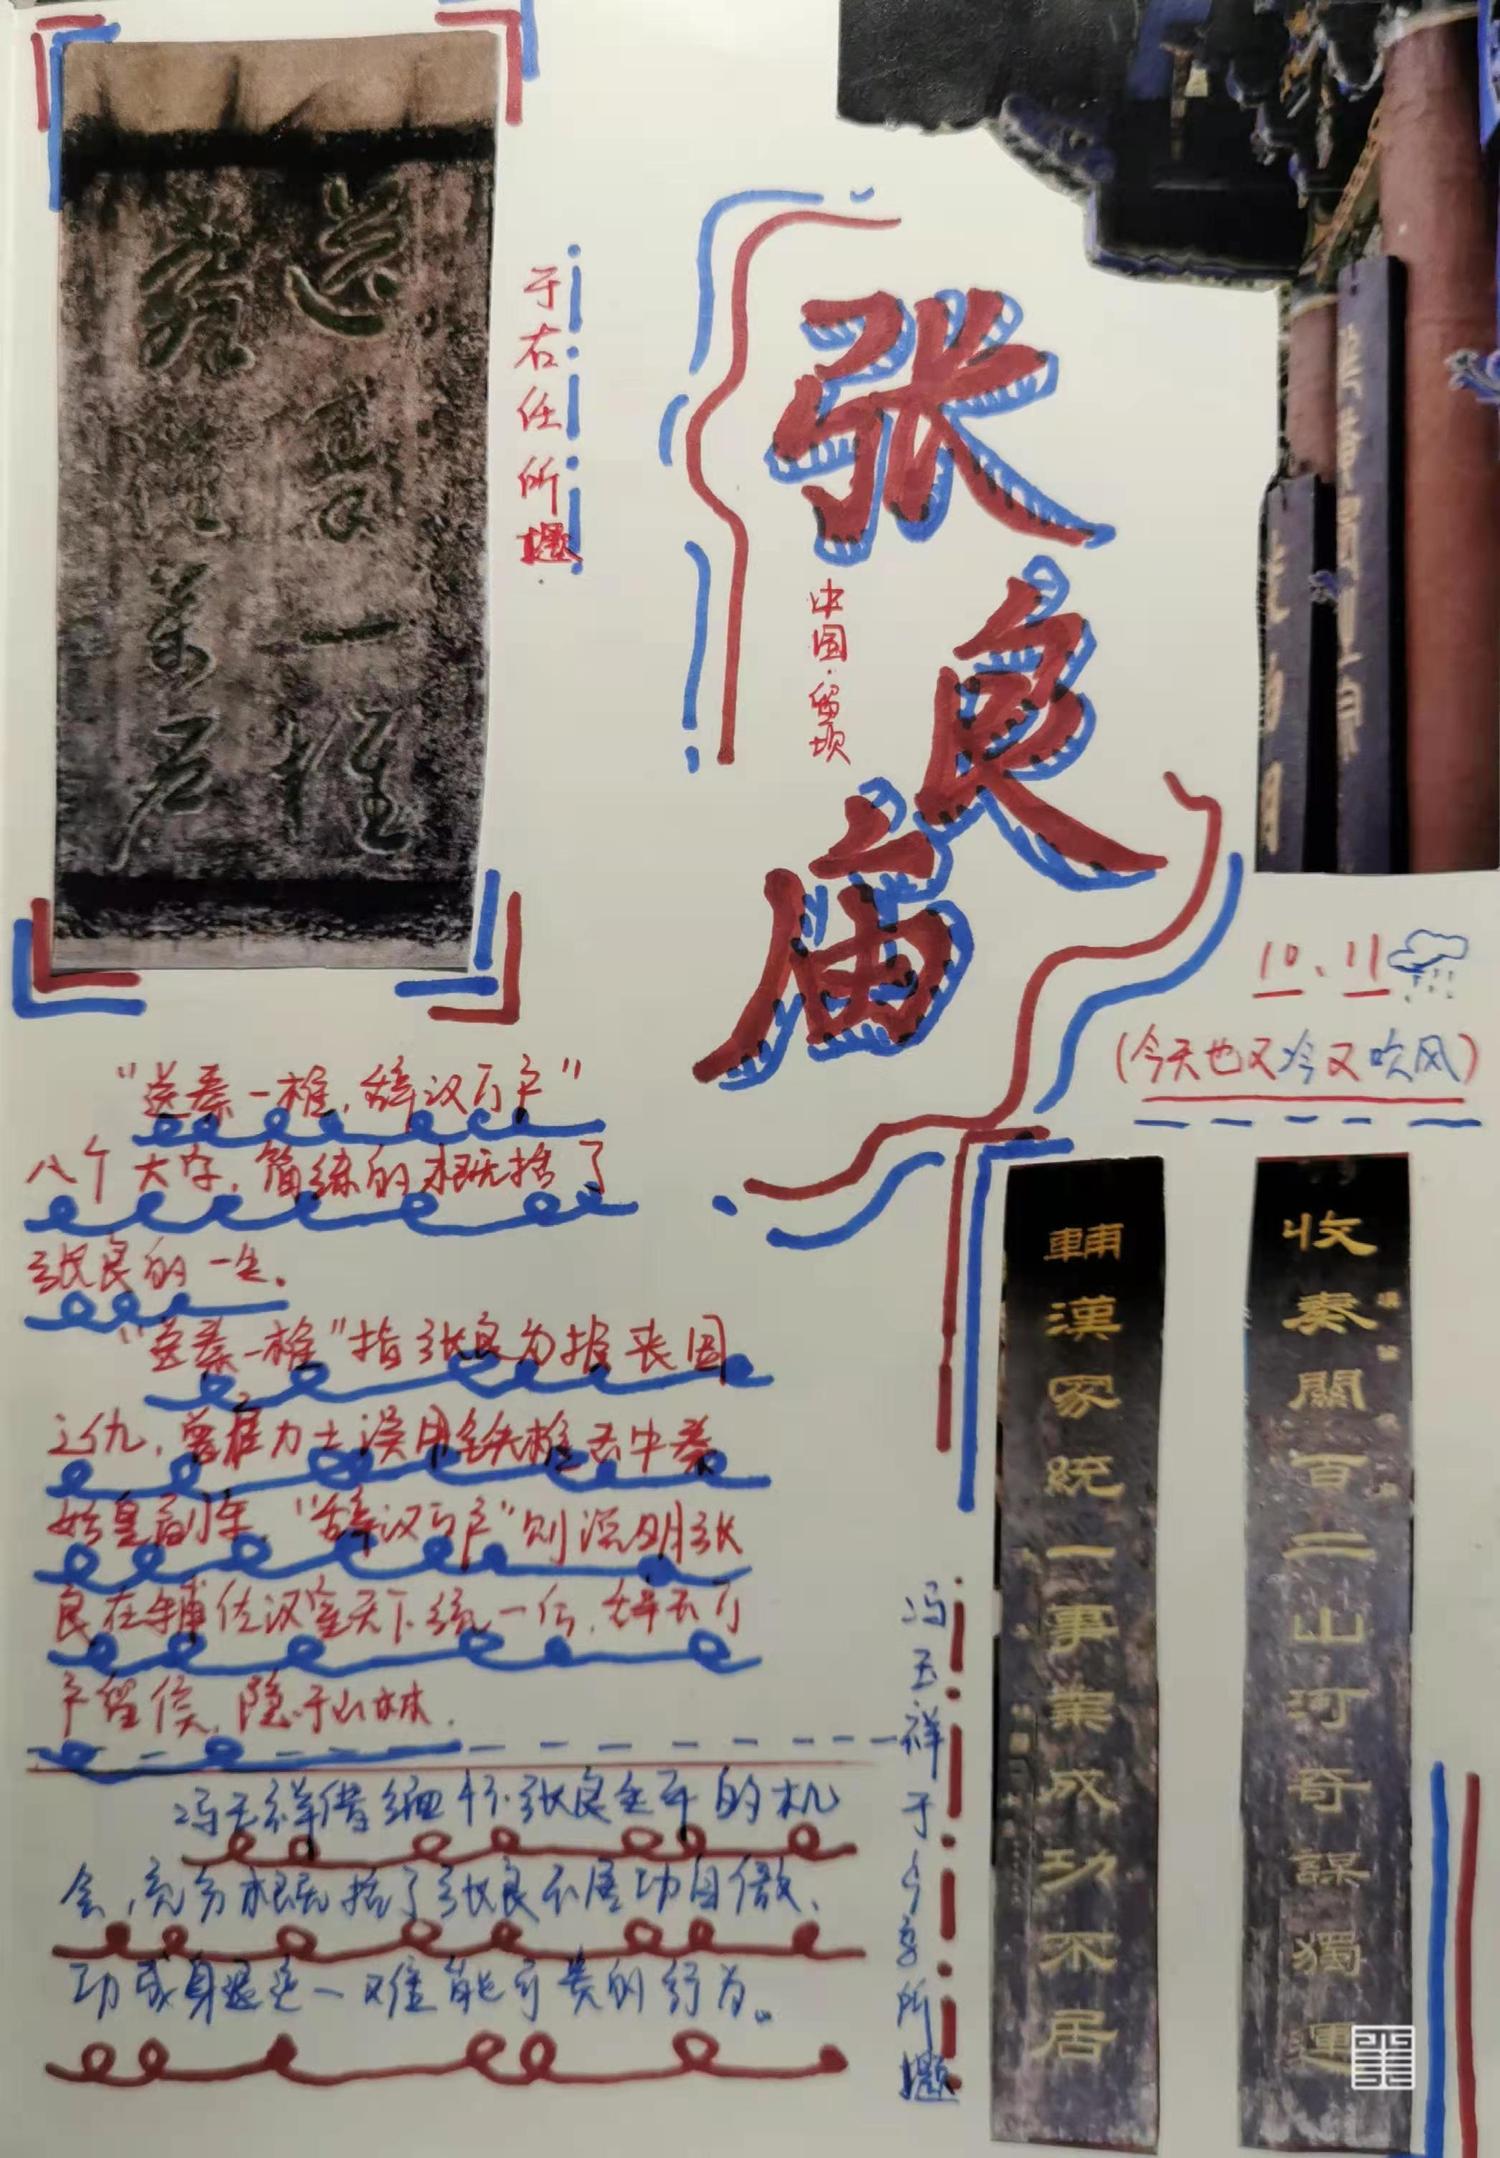 送秦一椎
辞汉万户
于右任所题
张良庙
中国·留坝
10.11
(今天也又冷又吹风)
“送秦一椎,辞汉万户”
八个大字,简练的概括了
张良的一生。
“送秦一椎”指张良为报丧国
之仇,曾雇力士误用铁椎击中秦
始皇副车,“辞汉万户”则说明张
良在辅佐汉室天下统一后,辞去万
户留侯,隐于山林.
冯玉祥借缅怀张良生平的机
会,充分概括了张良不居功自傲、
功成身退这一难能可贵的行为。
冯玉祥于
所题
收秦關百二山河奇謀獨運
輔漢家統一事業成功不居